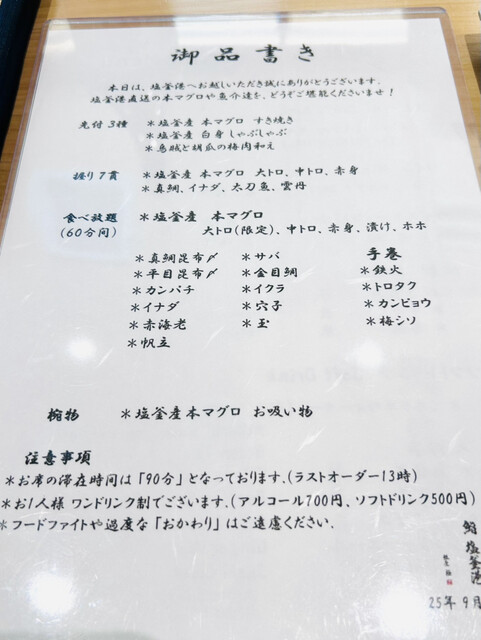 御品書き
本日は、塩釜港へお越しいただき誠にありがとうございます。
塩釜港直送の本マグロや魚介達を、どうぞご堪能くださいませ!
先付 3種 *塩釜産 本マグロ すき焼き
*塩釜産 白身 しゃぶしゃぶ
*烏賊と胡瓜の梅肉和え
握り 7貫 *塩釜産 本マグロ 大トロ、中トロ、赤身
*真鯛、イナダ、太刀魚、雲丹
食べ放題 *塩釜産 本マグロ
(60分間) 大トロ(限定)、中トロ、赤身、漬け、ホホ
*真鯛昆布〆 *サバ 手巻
*平目昆布〆 *金目鯛 *鉄火
*カンパチ *イクラ *トロタク
*イナダ *穴子 *カンピョウ
*赤海老 *玉 *梅シソ
*帆立
椀物 *塩釜産本マグロ お吸い物
注意事項
*お席の滞在時間は「90分」となっております。(ラストオーダー13時)
*お1人様 ワンドリンク制でございます。(アルコール700円、ソフトドリンク500円)
*フードファイトや過度な「おかわり」はご遠慮ください。
鮨 塩釜港
25年 9月